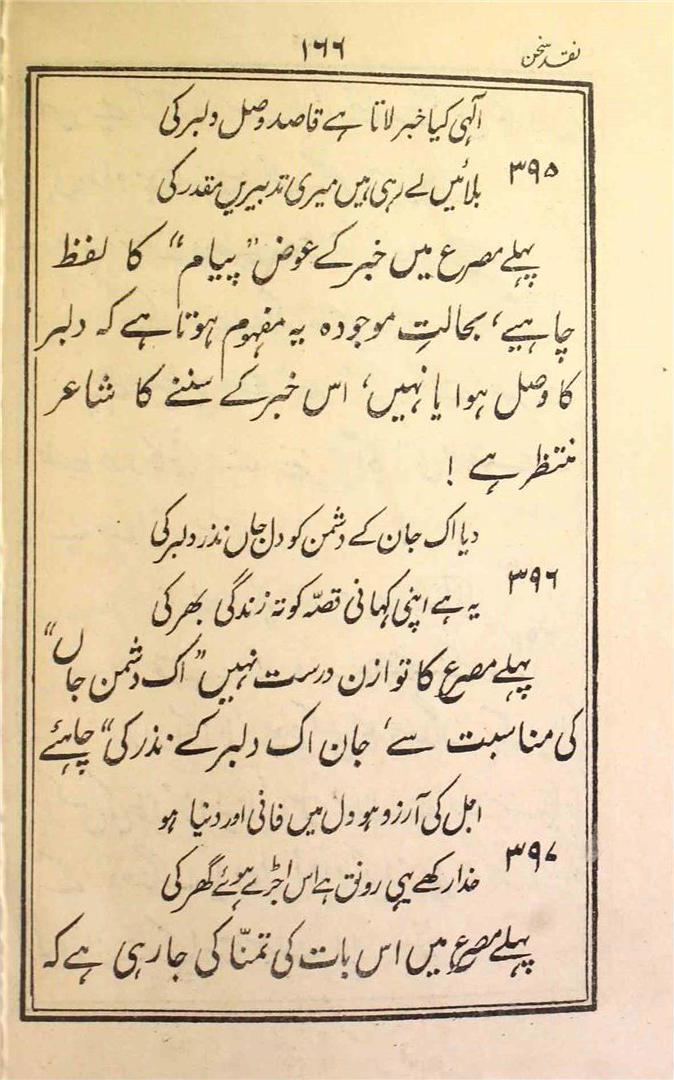 نقد سخن
۱۶۶
الٰہی کیا خبر لاتا ہے قاصد وصل دلبر کی
۳۹۵
بلائیں لے رہی ہیں میری تدبیریں مقدر کی
پہلے مصرع میں خبر کے عوض ”پیام“ کا لفظ
چاہیے، بحالتِ موجودہ یہ مفہوم ہوتا ہے کہ دلبر
کا وصل ہوا یا نہیں، اس خبر کے سننے کا شاعر
منتظر ہے !
دیا اک جان کے دشمن کو دل جاں نذر دلبر کی
۳۹۶
یہ ہے اپنی کہانی قصّہ کوتہ زندگی بھر کی
پہلے مصرع کا توازن درست نہیں ”اک دشمن جاں“
کی مناسبت سے، جان اک دلبر کے نذر کی“ چاہئے
اجل کی آرزو ہو دل میں فانی اور دنیا ہو
۳۹۷
خدا رکھے یہی رونق ہے اس اجڑے ہوئے گھر کی
پہلے مصرع میں اس بات کی تمنّا کی جا رہی ہے کہ